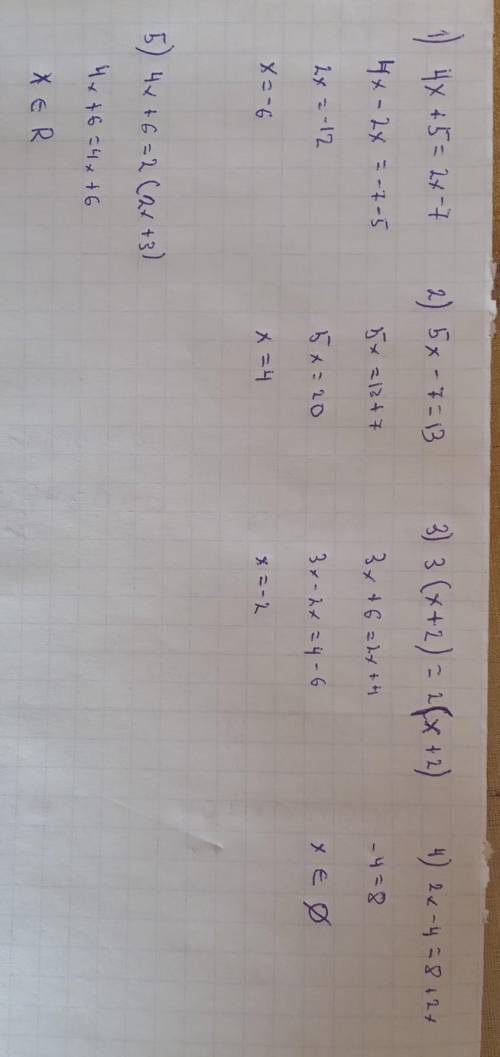 1) 4x + 5 = 2x - 7
4x - 2x = -7 - 5
2x = -12
x = -6
2) 5x - 7 = 13
5x = 13 + 7
5x = 20
x = 4
3) 3(x + 2) = 2(x + 2)
3x + 6 = 2x + 4
3x - 2x = 4 - 6
x = -2
4) 2x - 4 = 8 + 2x
-4 = 8
x ∈ ∅
5) 4x + 6 = 2(2x + 3)
4x + 6 = 4x + 6
x ∈ R